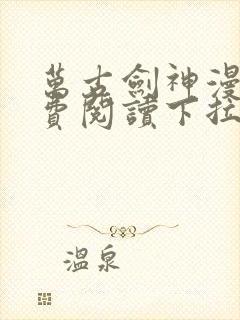 萬古劍神漫
費閱讀下拉
溫泉